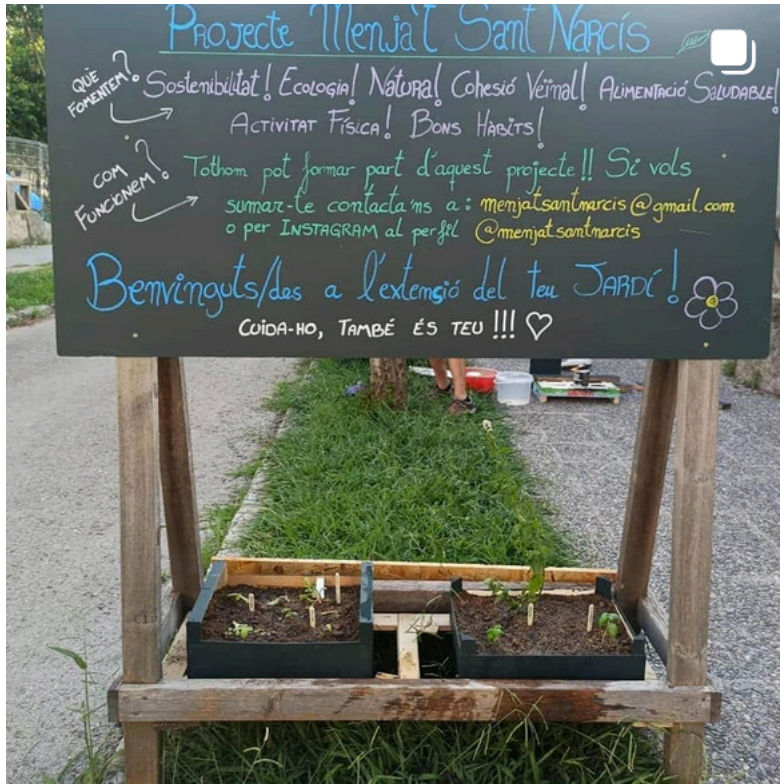 Projecte Menja't Sant Narcís
Què fomentem?
Sostenibilitat! Ecologia! Natura! Cohesió Veïnal! Alimentació Saludable!
Activitat Física! Bons Hàbits!
Com funcionem?
Tothom pot formar part d'aquest projecte!! Si vols
sumar-te contacta'ns a: menjatsantnarcis@gmail.com
o per INSTAGRAM al perfil @menjatsantnarcis
Benvinguts/des a l'extensió del teu JARDÍ!
CUIDA-HO, TAMBÉ ÉS TEU!!!